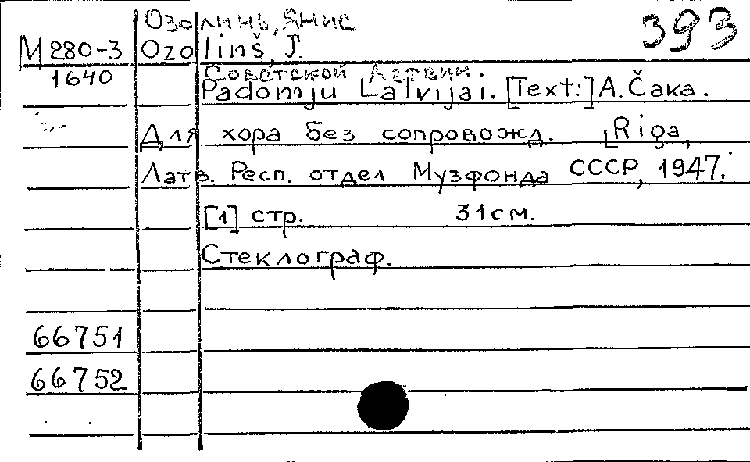 Озолинь, Янис
393
М 280-3 Ozoliņš, J.
1640
Советской Латвии.
Padomju Latvijai. [Text:] A. Čaka.
Для хора без сопровожд. [Rīga,
Латв. Респ. отдел Музфонда СССР, 1947.
[1] стр. 31 см.
Стеклограф.
66751
66752